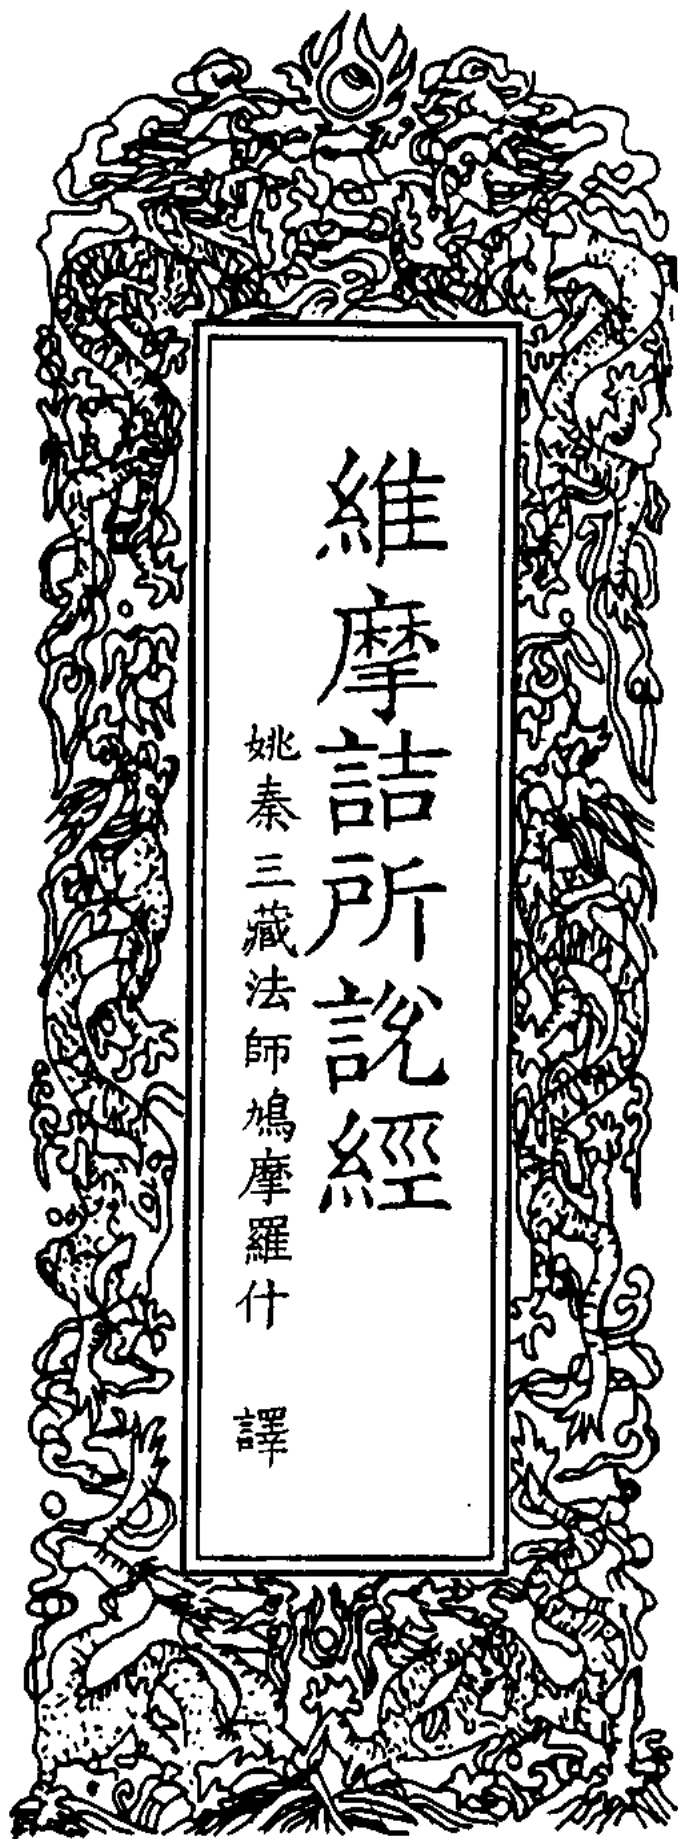 維摩詰所說經
姚秦三藏法師鳩摩羅什　譯